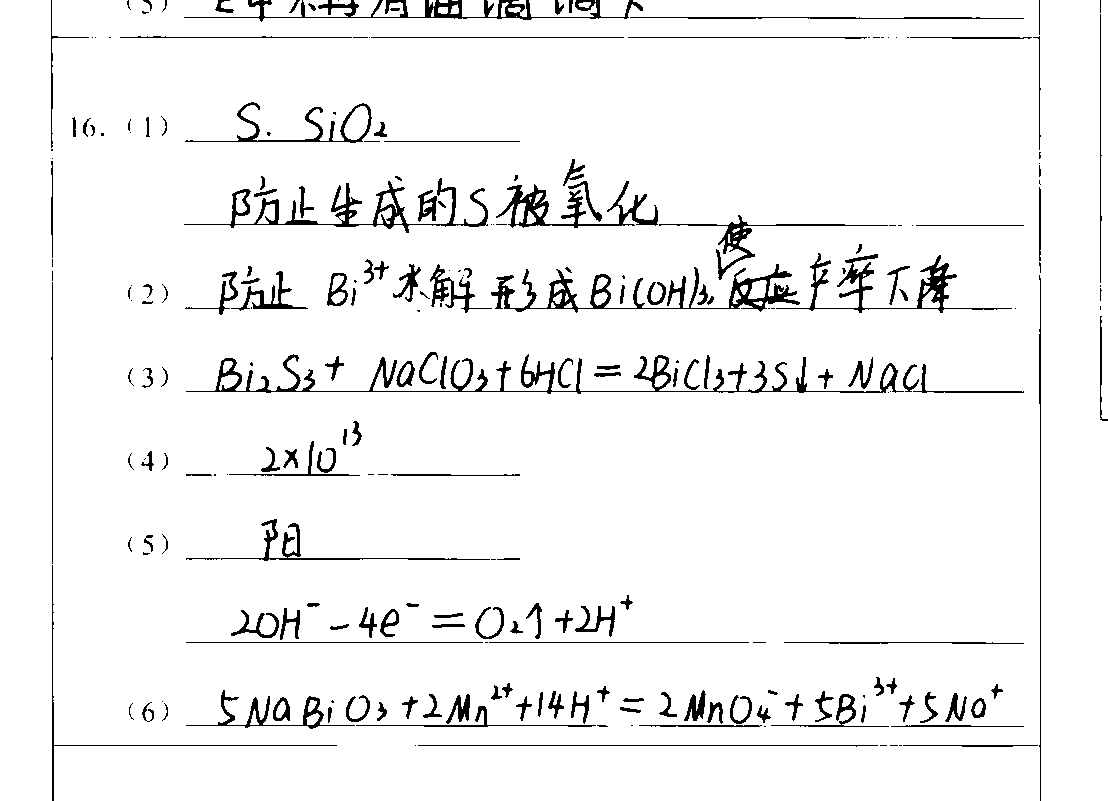 (5)
16. (1) S. SiO₂
防止生成的S被氧化
(2) 防止 Bi³⁺水解形成Bi(OH)₃, 使反应产率下降
(3) Bi₂S₃+ NaClO₃+6HCl=2BiCl₃+3S↓+ NaCl
(4) 2×10¹³
(5) 阳
2OH⁻-4e⁻=O₂↑+2H⁺
(6) 5NaBiO₃+2Mn²⁺+14H⁺=2MnO₄⁻+5Bi³⁺+5Na⁺